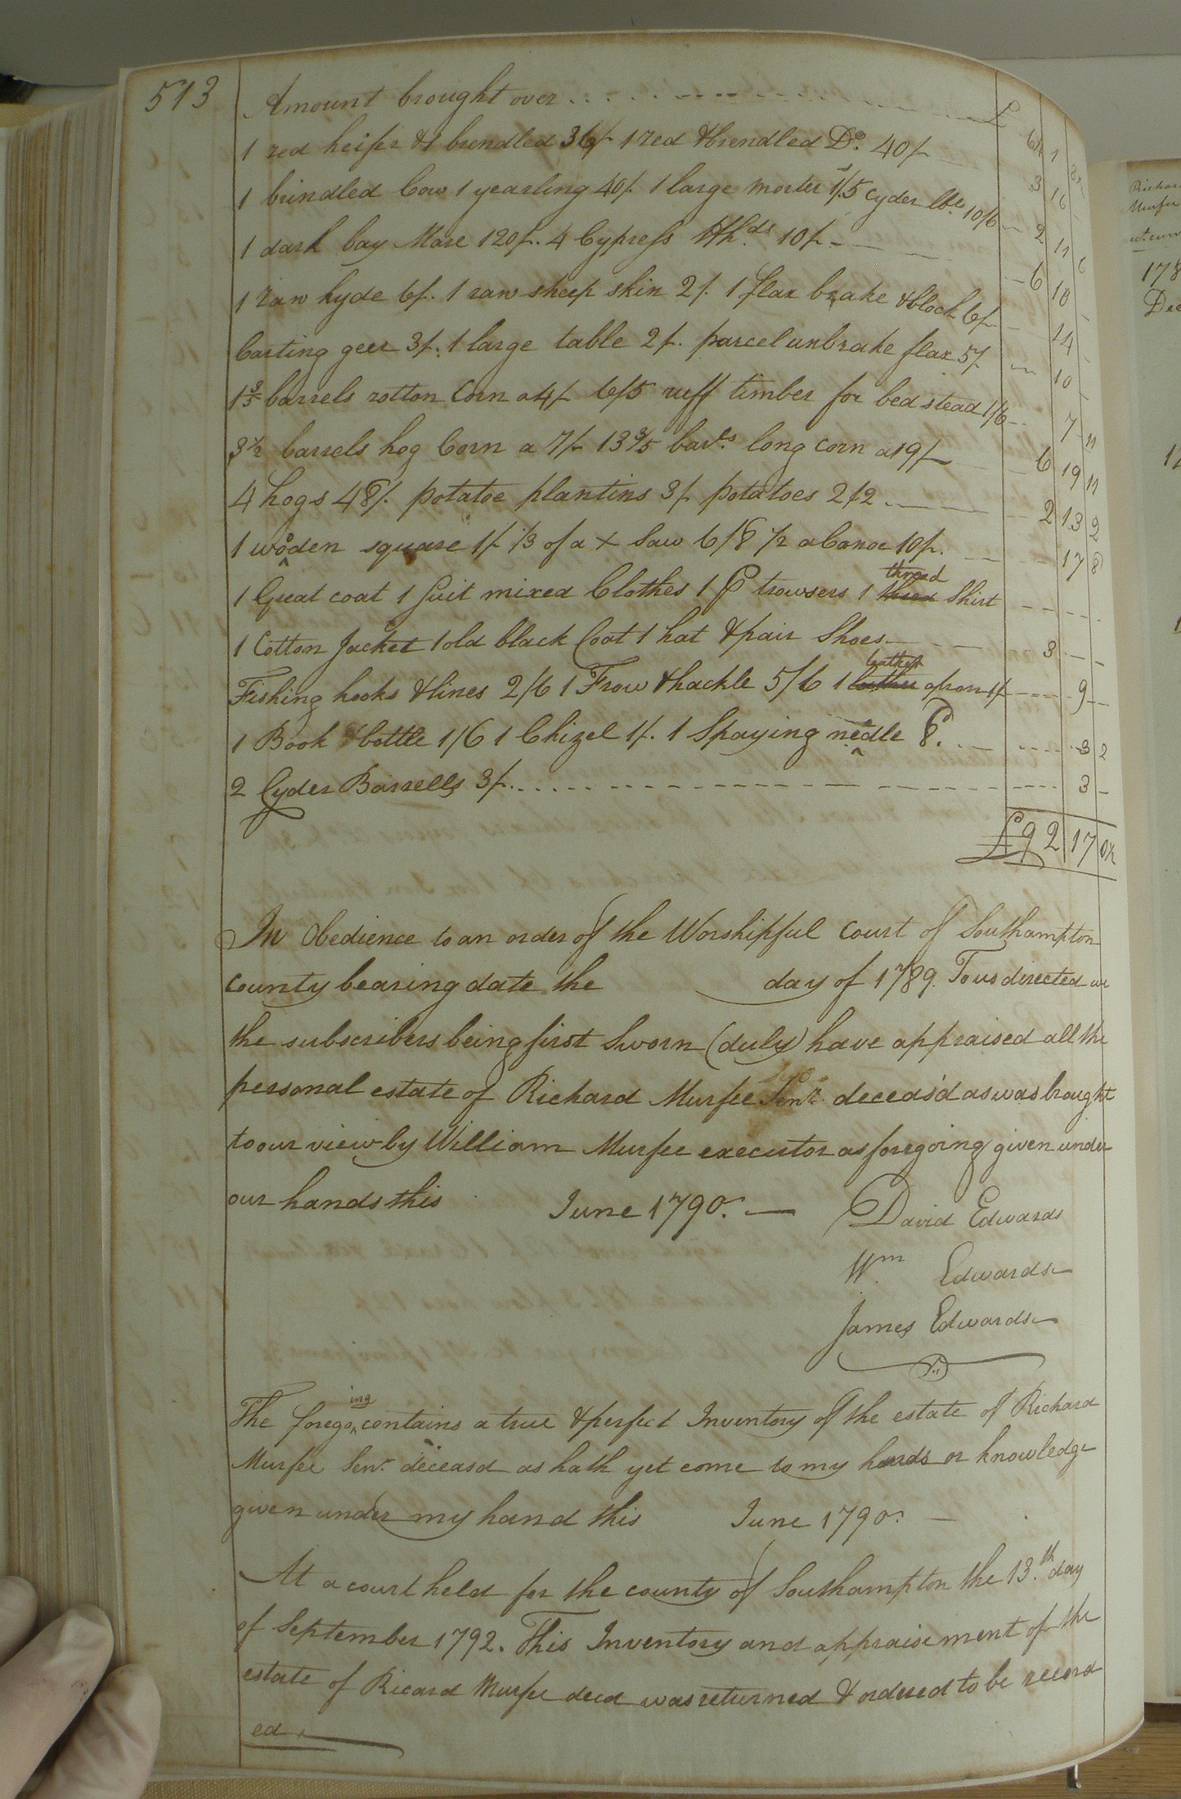 513
Amount brought over . . . . . £ 64 1
1 red heifer & 1 brendled 36/ 1 red & brendled Do. 40/- 3 16 -
1 brindled Cow 1 yearling 40/. 1 large morter 1/. 5 cyder lbs 10/6 2 11 6
1 dark bay Mare 120/. 4 Cypress Hhds 10/- 6 10 -
1 raw hyde 6/. 1 raw sheep skin 2/. 1 flax brake & block 6/- 14 -
Carting geer 3/. 1 large table 2/. parcel unbrake flax 5/ 10 -
1 3/5 barrels rotton Corn a 4/- 6/5 ruff timber for bed stead 1/6 7 11
3 1/2 barrels hog Corn a 7/- 13 3/5 barls. long corn a 9/- 6 19 11
4 hogs 48/. potatoe plantins 3/. potatoes 2/2 2 13 2
1 wooden square 1/. 1/3 of a X saw 6/8 1/2 a Canoe 10/. 17 8
1 Great coat 1 Suit mixed Clothes 1 P trowsers 1 thread Shirt
1 Cotton Jacket 1 old black Coat 1 hat & pair Shoes 3 - -
Fishing hooks & lines 2/6 1 Frow & hackle 5/6 1 leather apron 1/- 9 -
1 Book & bottle 1/6 1 Chizel 1/. 1 Spaying needle 8. 3 2
2 Cyder Barrells 3/. 3 -
£92 17
In Obedience to an order of the Worshipful Court of Southampton
County bearing date the day of 1789. To us directed we
the subscribers being first Sworn (duly) have appraised all the
personal estate of Richard Murfee Senr. deceas'd as was brought
to our view by William Murfee executor as foregoing given under
our hands this June 1790. —
David Edwards
Wm Edwards
James Edwards
The foregoing contains a true & perfect Inventory of the estate of Richard
Murfee Senr. deceasd as hath yet come to my hands or knowledge
given under my hand this June 1790. —
At a court held for the county of Southampton the 13th. day
of September 1792. This Inventory and appraisement of the
estate of Ricard Murfee decd was returned & ordered to be record
ed.
178
Dec